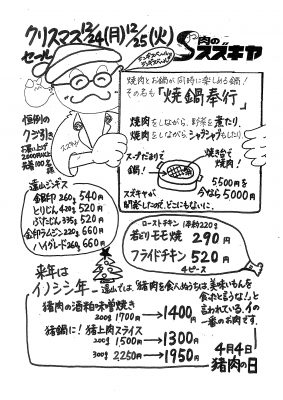 クリスマス 12/24(月) 12/25(火)
セール
肉の
スズキヤ
焼肉とお鍋が同時に楽しめる鍋!
その名も「焼鍋奉行」
焼肉をしながら、野菜を煮たり、
焼肉をしながら、シャブシャブもしたり。
スープたまりで
鍋!
焼き台で
焼肉!
5500円を
今なら5000円
スズキヤが
開発したので、どこにもないに。
恒例の
クジ引き
お買い上げ
2000円以上
先着100名様
スズキヤ
遠山ジンギス
金印 260g 540円
とりじん 420g 520円
ぶたじん 335g 520円
金印ラムジン 220g 660円
ハイグレード 360g 660円
ローストチキン 1本約220g
若どりモモ焼 290円
フライドチキン 520円
4ピース
来年は
イノシシ年
遠山では、「猪肉を食わんうちは、美味いもんを
食ったと言うな!」と
言われている、イの
一番のお肉です。
猪肉の酒粕味噌焼き
200g 1700円→1400円
猪鍋に!猪上肉スライス
200g 1500円→1300円
300g 2,250円→1950円
4月4日
猪肉の日